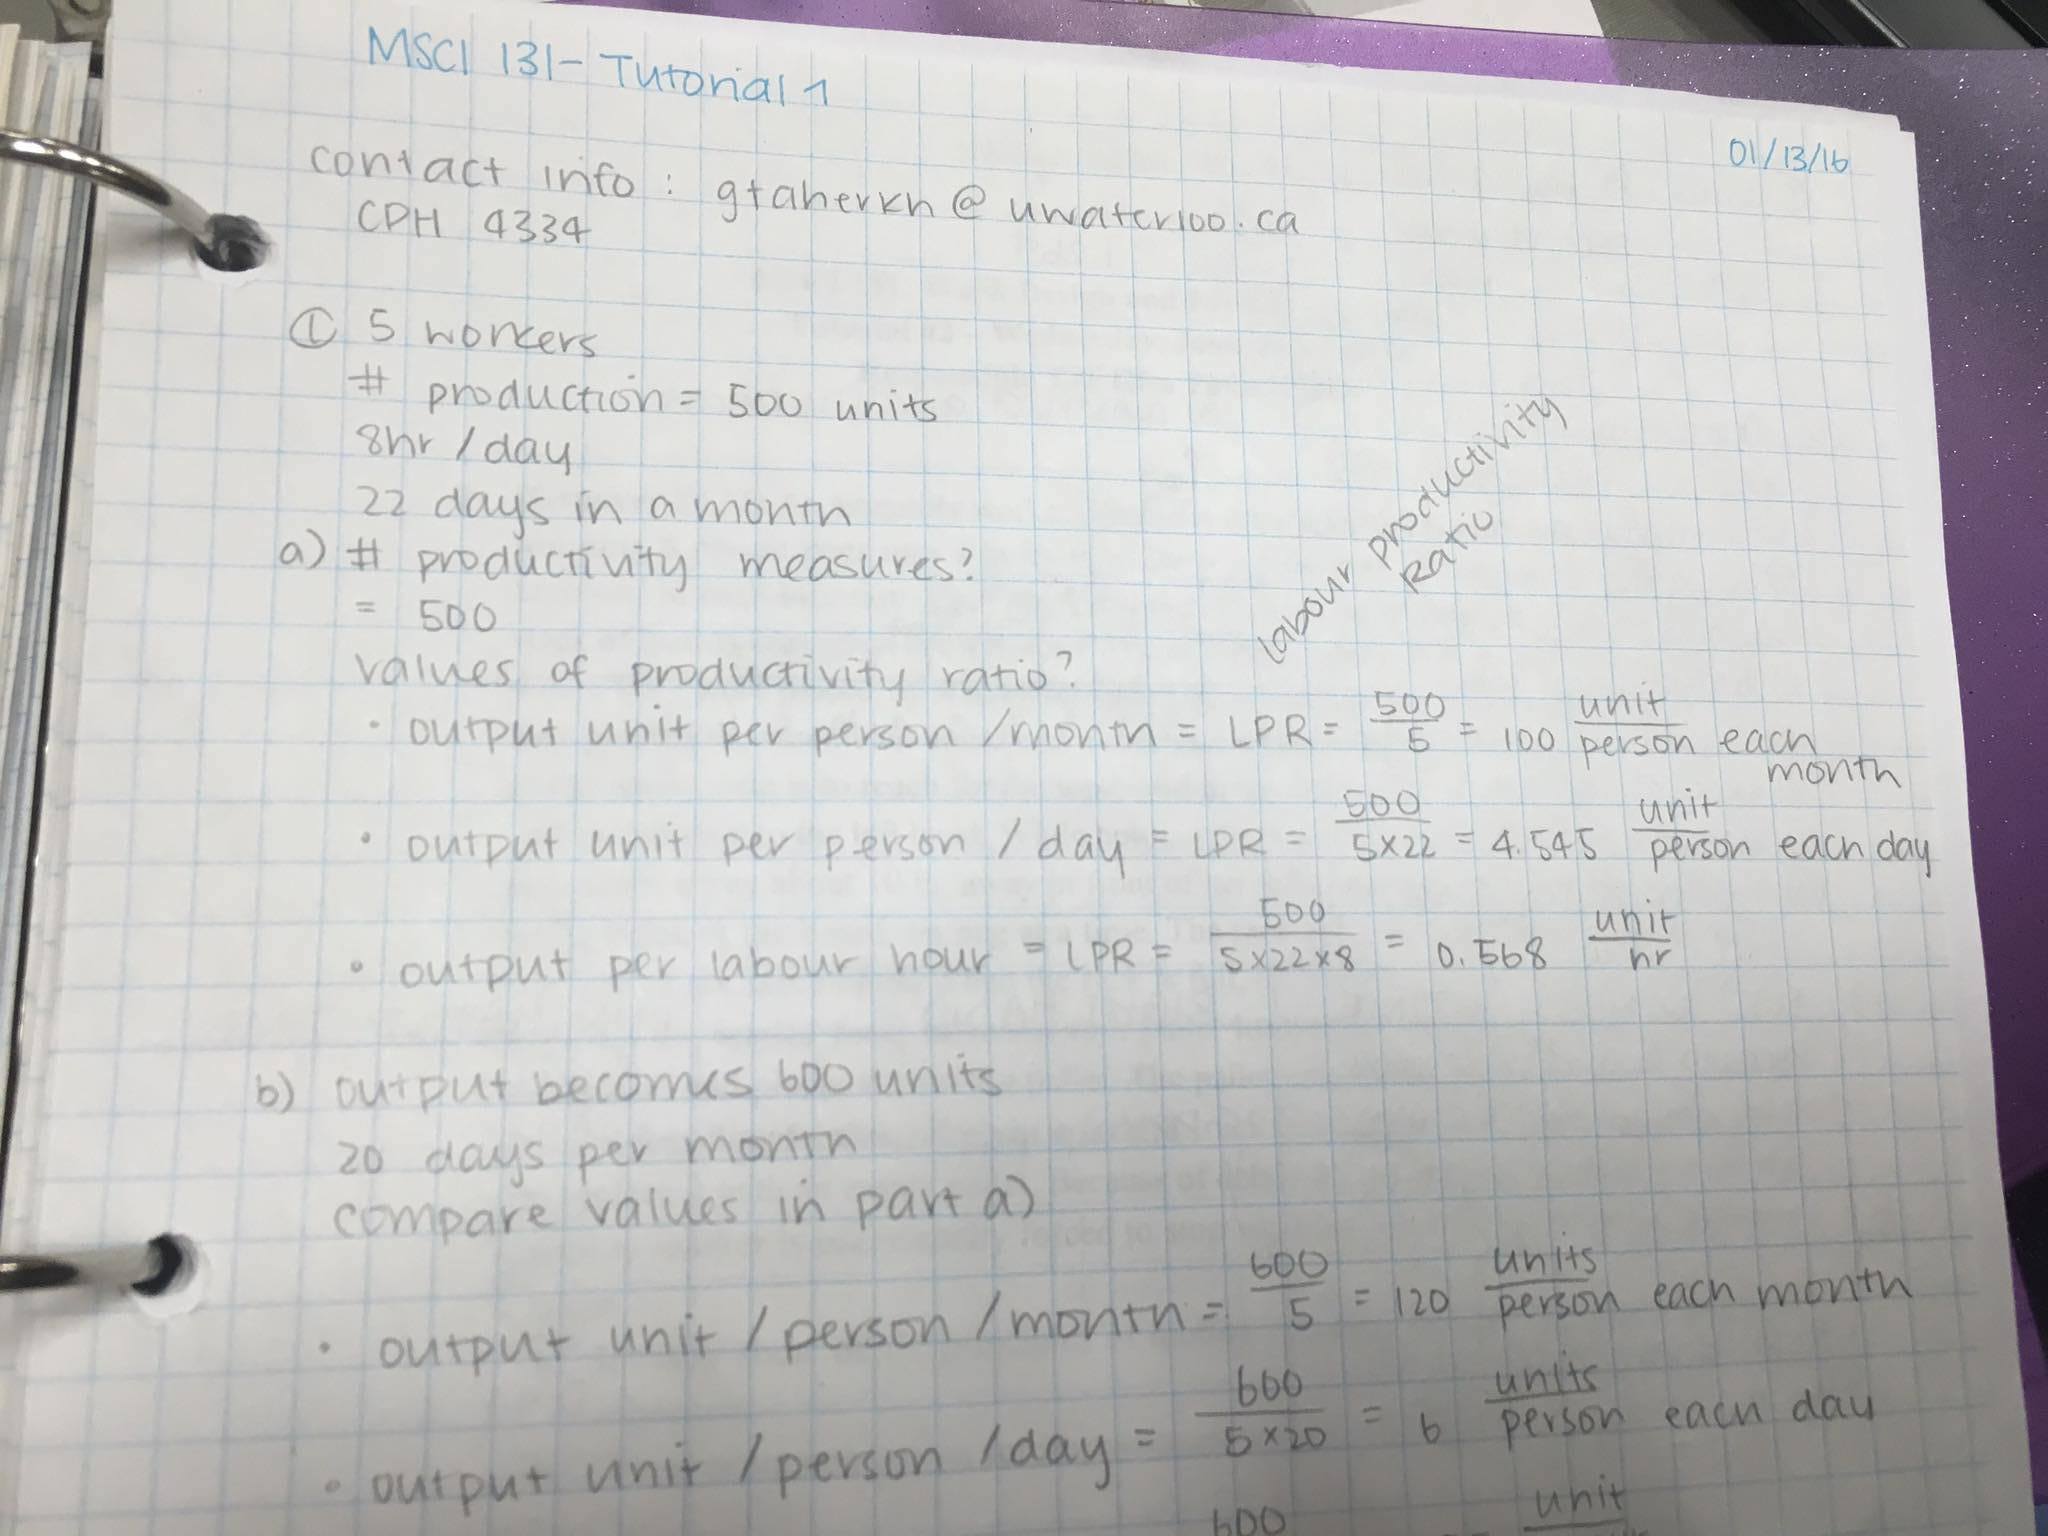 MSCI 131 - Tutorial 1
01/13/16
contact info : gtaherkh@uwaterloo.ca
CPH 4334
① 5 workers
# production = 500 units
8hr / day
22 days in a month
a) # productivity measures?
= 500
values of productivity ratio?
Labour Productivity
Ratio
• output unit per person /month = LPR = 500/5 = 100 unit/person each month
• output unit per person / day = LPR = 500/5x22 = 4.545 unit/person each day
• output per labour hour = LPR = 500/5x22x8 = 0.568 unit/hr
b) output becomes 600 units
20 days per month
compare values in part a)
• output unit / person / month = 600/5 = 120 units/person each month
• output unit / person / day = 600/5x20 = 6 units/person each day
600 unit